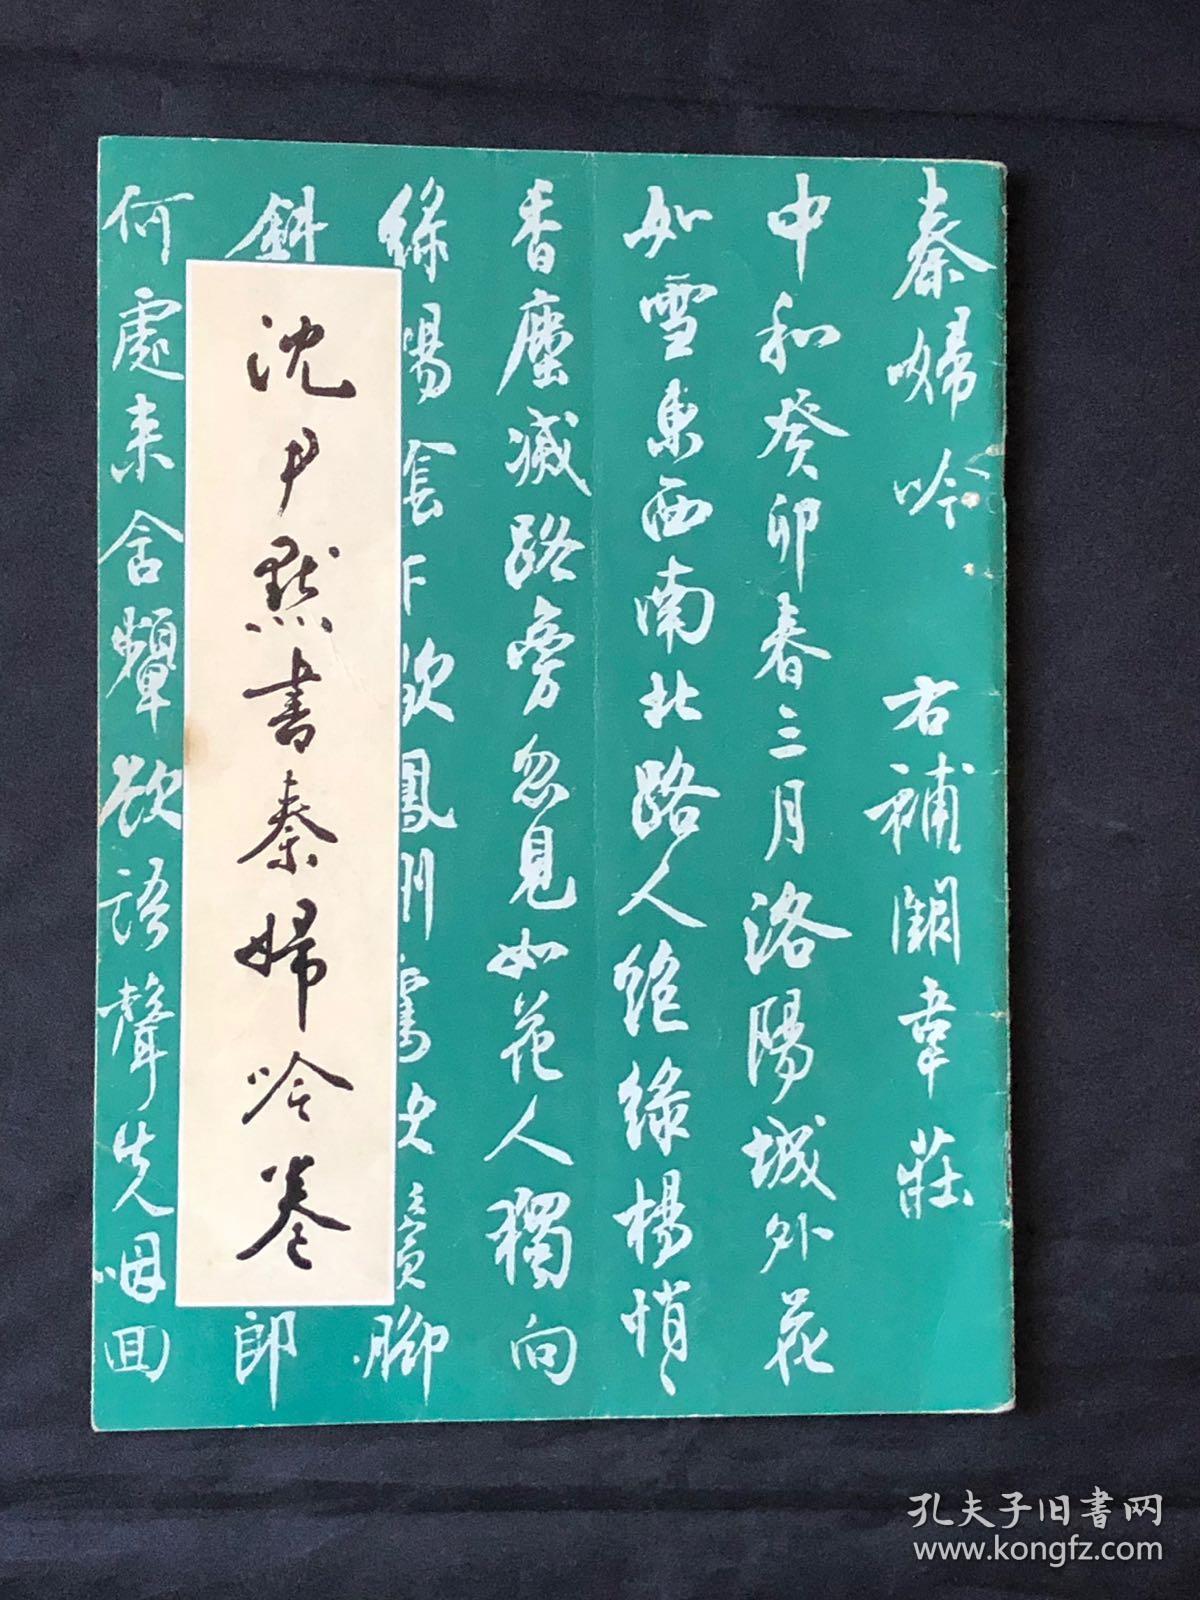 秦婦吟 右補闕韋莊
中和癸卯春三月洛陽城外花
如雪東西南北路人絕綠楊悄〻
香塵滅路旁忽見如花人獨向
綠陽陰下歇鳳側鸞攲鬢腳
斜 郎
何處來含顰欲語聲先咽回
沈尹默書秦婦吟卷
孔夫子旧书网
www.kongfz.com